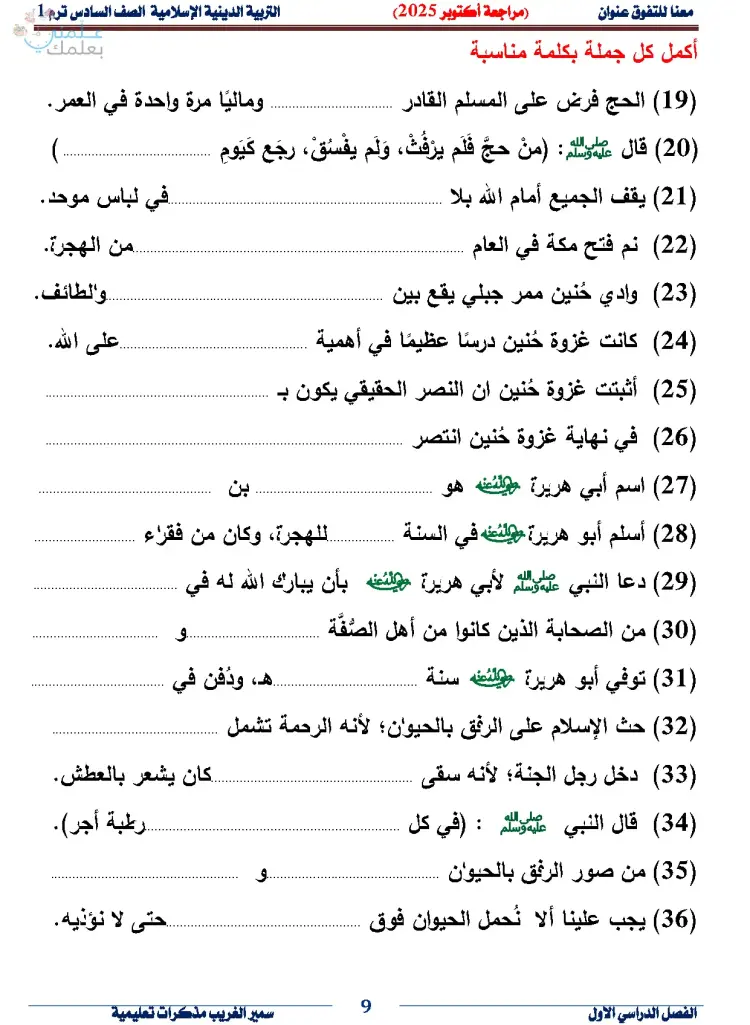 معنا للتفوق عنوان (مراجعة أكتوبر 2025) التربية الدينية الإسلامية الصف السادس ترم 1
علمني بعلمك
أكمل كل جملة بكلمة مناسبة
(19) الحج فرض على المسلم القادر .................... وماليًا مرة واحدة في العمر.
(20) قال ﷺ: (منْ حجَّ فَلَم يرْفُثْ، وَلَم يفْسُقْ، رجَع كَيَومِ .................... )
(21) يقف الجميع أمام الله بلا ....................في لباس موحد.
(22) نم فتح مكة في العام ....................من الهجرة.
(23) وادي حُنين ممر جبلي يقع بين ....................والطائف.
(24) كانت غزوة حُنين درسًا عظيمًا في أهمية ....................على الله.
(25) أثبتت غزوة حُنين ان النصر الحقيقي يكون بـ ....................
(26) في نهاية غزوة حُنين انتصر ....................
(27) اسم أبي هريرة رضي الله عنه هو .................... بن ....................
(28) أسلم أبو هريرة رضي الله عنه في السنة ....................للهجرة، وكان من فقراء ....................
(29) دعا النبي ﷺ لأبي هريرة رضي الله عنه بأن يبارك الله له في ....................
(30) من الصحابة الذين كانوا من أهل الصُّفَّة ....................و ....................
(31) توفي أبو هريرة رضي الله عنه سنة ....................هـ، ودُفن في ....................
(32) حث الإسلام على الرفق بالحيوان؛ لأنه الرحمة تشمل ....................
(33) دخل رجل الجنة؛ لأنه سقى ....................كان يشعر بالعطش.
(34) قال النبي ﷺ : (في كل ....................رطبة أجر).
(35) من صور الرفق بالحيوان ....................و ....................
(36) يجب علينا ألا نُحمل الحيوان فوق ....................حتى لا نؤذيه.
الفصل الدراسي الاول 9 سمير الغريب مذكرات تعليمية